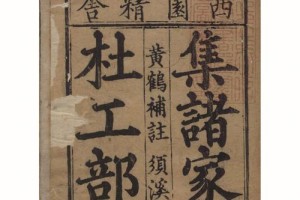 西園精舍
集諸家
黃鶴補註 須溪
杜工部